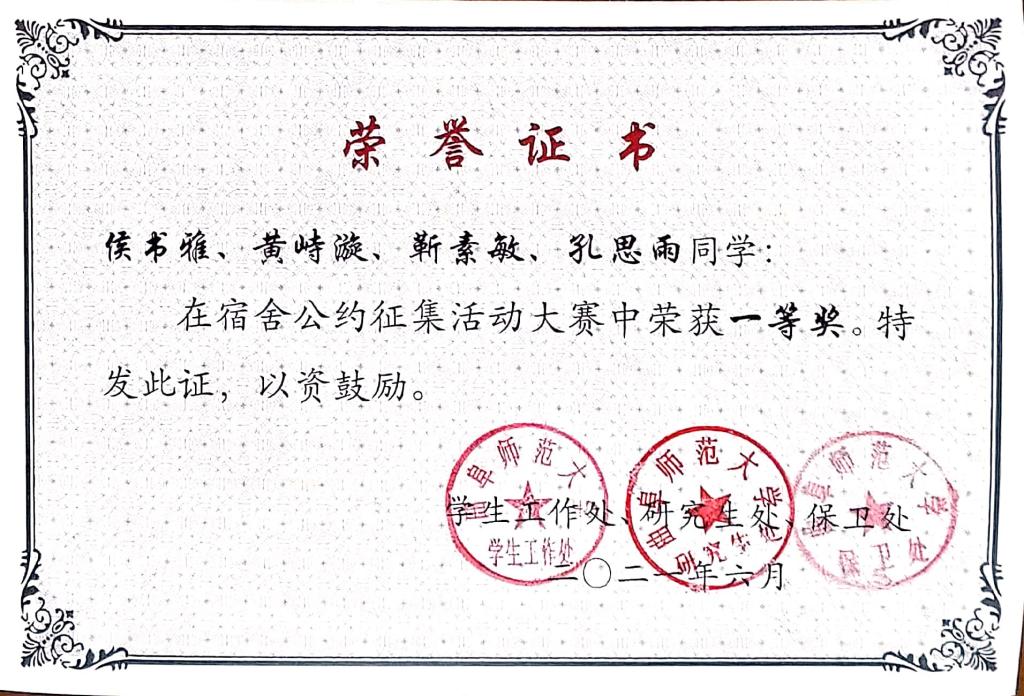 荣誉证书
侯书雅、黄峙漩、靳素敏、孔思雨同学：
在宿舍公约征集活动大赛中荣获一等奖。特
发此证，以资鼓励。
学生工作处、研究生处、保卫处
二〇二一年六月
曲阜师范大学
学生工作处
曲阜师范大学
研究生处
曲阜师范大学
保卫处